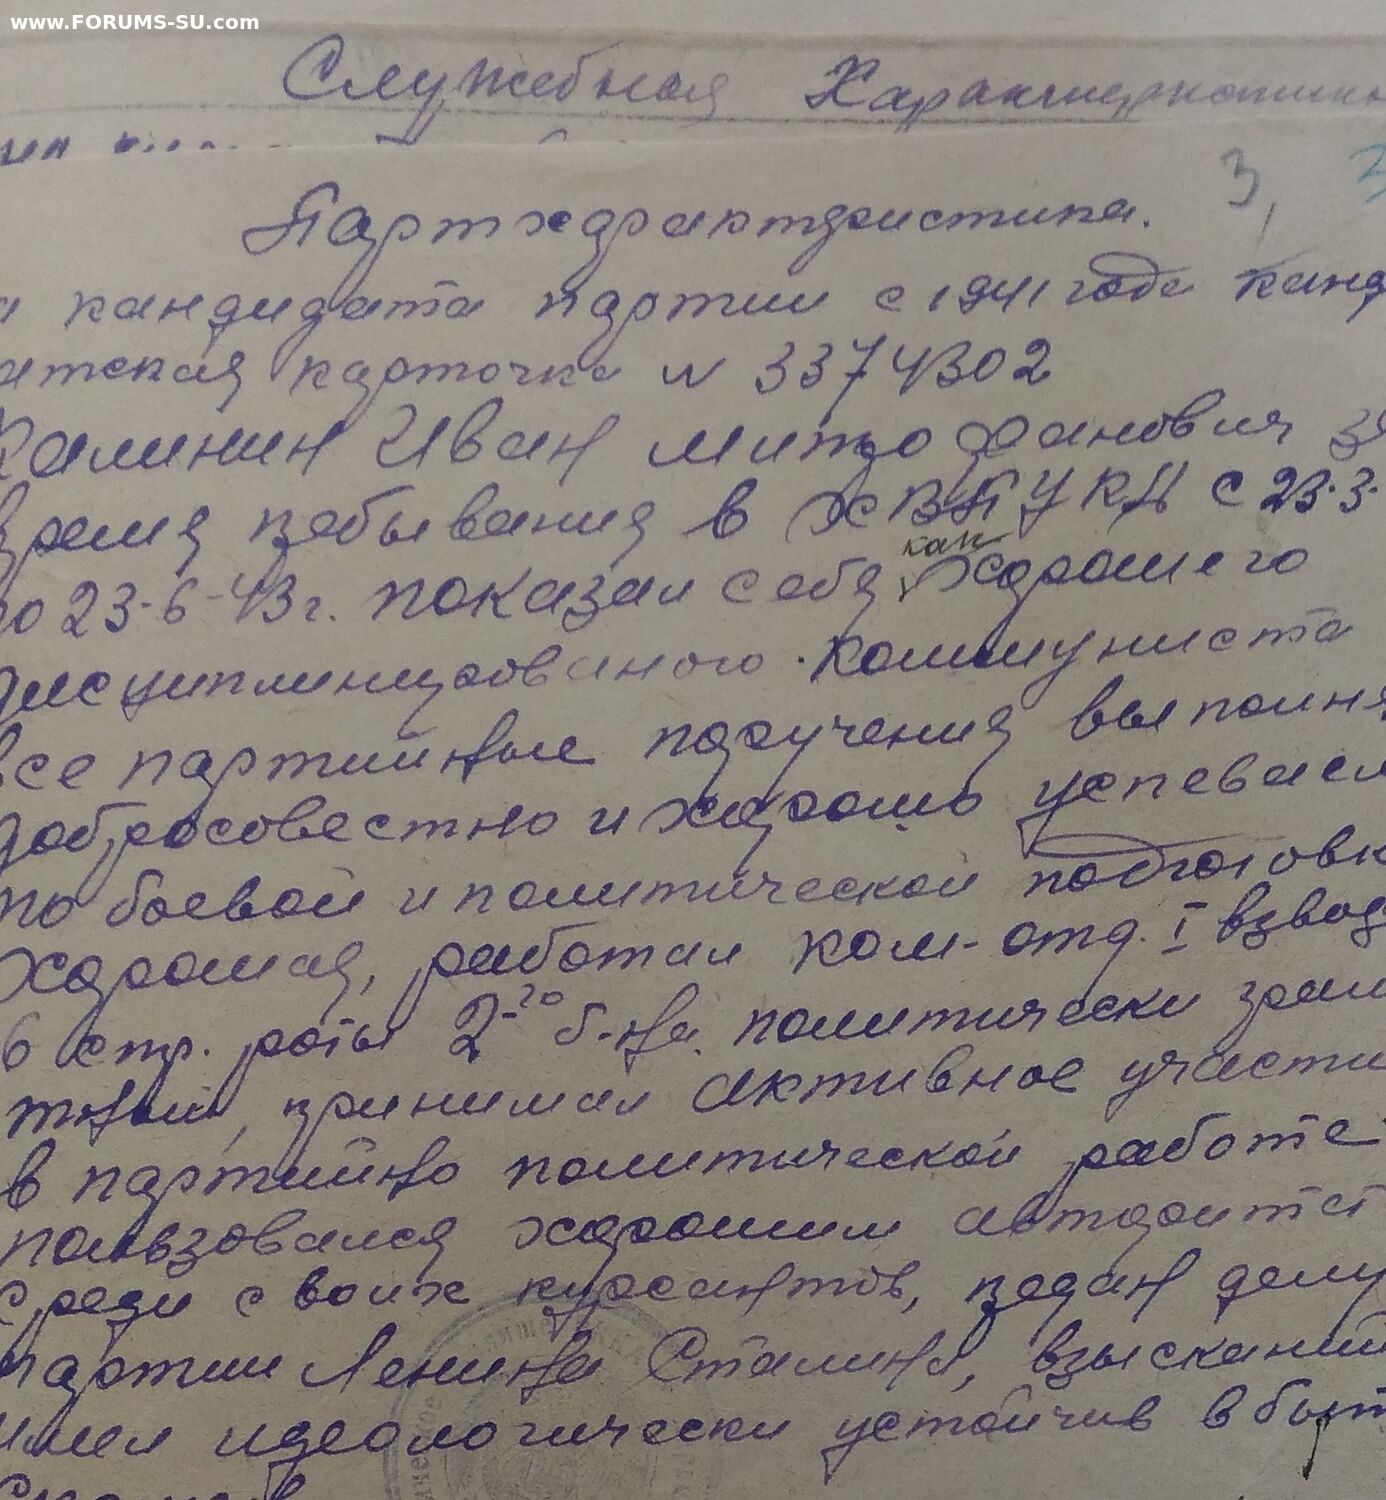 www.FORUMS-SU.com
Служебная Характеристика
3,
Партхарактеристика.
кандидата партии с 1941 года канд
атская карточка N 3374302
Калинин Иван Митрофанович за
время пребывания в ХВПУКА с 23.3.
по 23-6-43г. показал себя как хорошего
дисциплинированого. коммуниста
все партийные поручения выполнял
добросовестно и хорошо, успеваем
по боевой и политической подготовк
хорошая, работал ком-отд. I взвод
6 стр. роты 2-го б-на. политически грам
тный, принимал активное участи
в партийно политической работе
пользовался хорошим авторитет
среди своих курсантов, предан делу
партии Ленина Сталина, взысканий
имел идеологически устойчив в быт